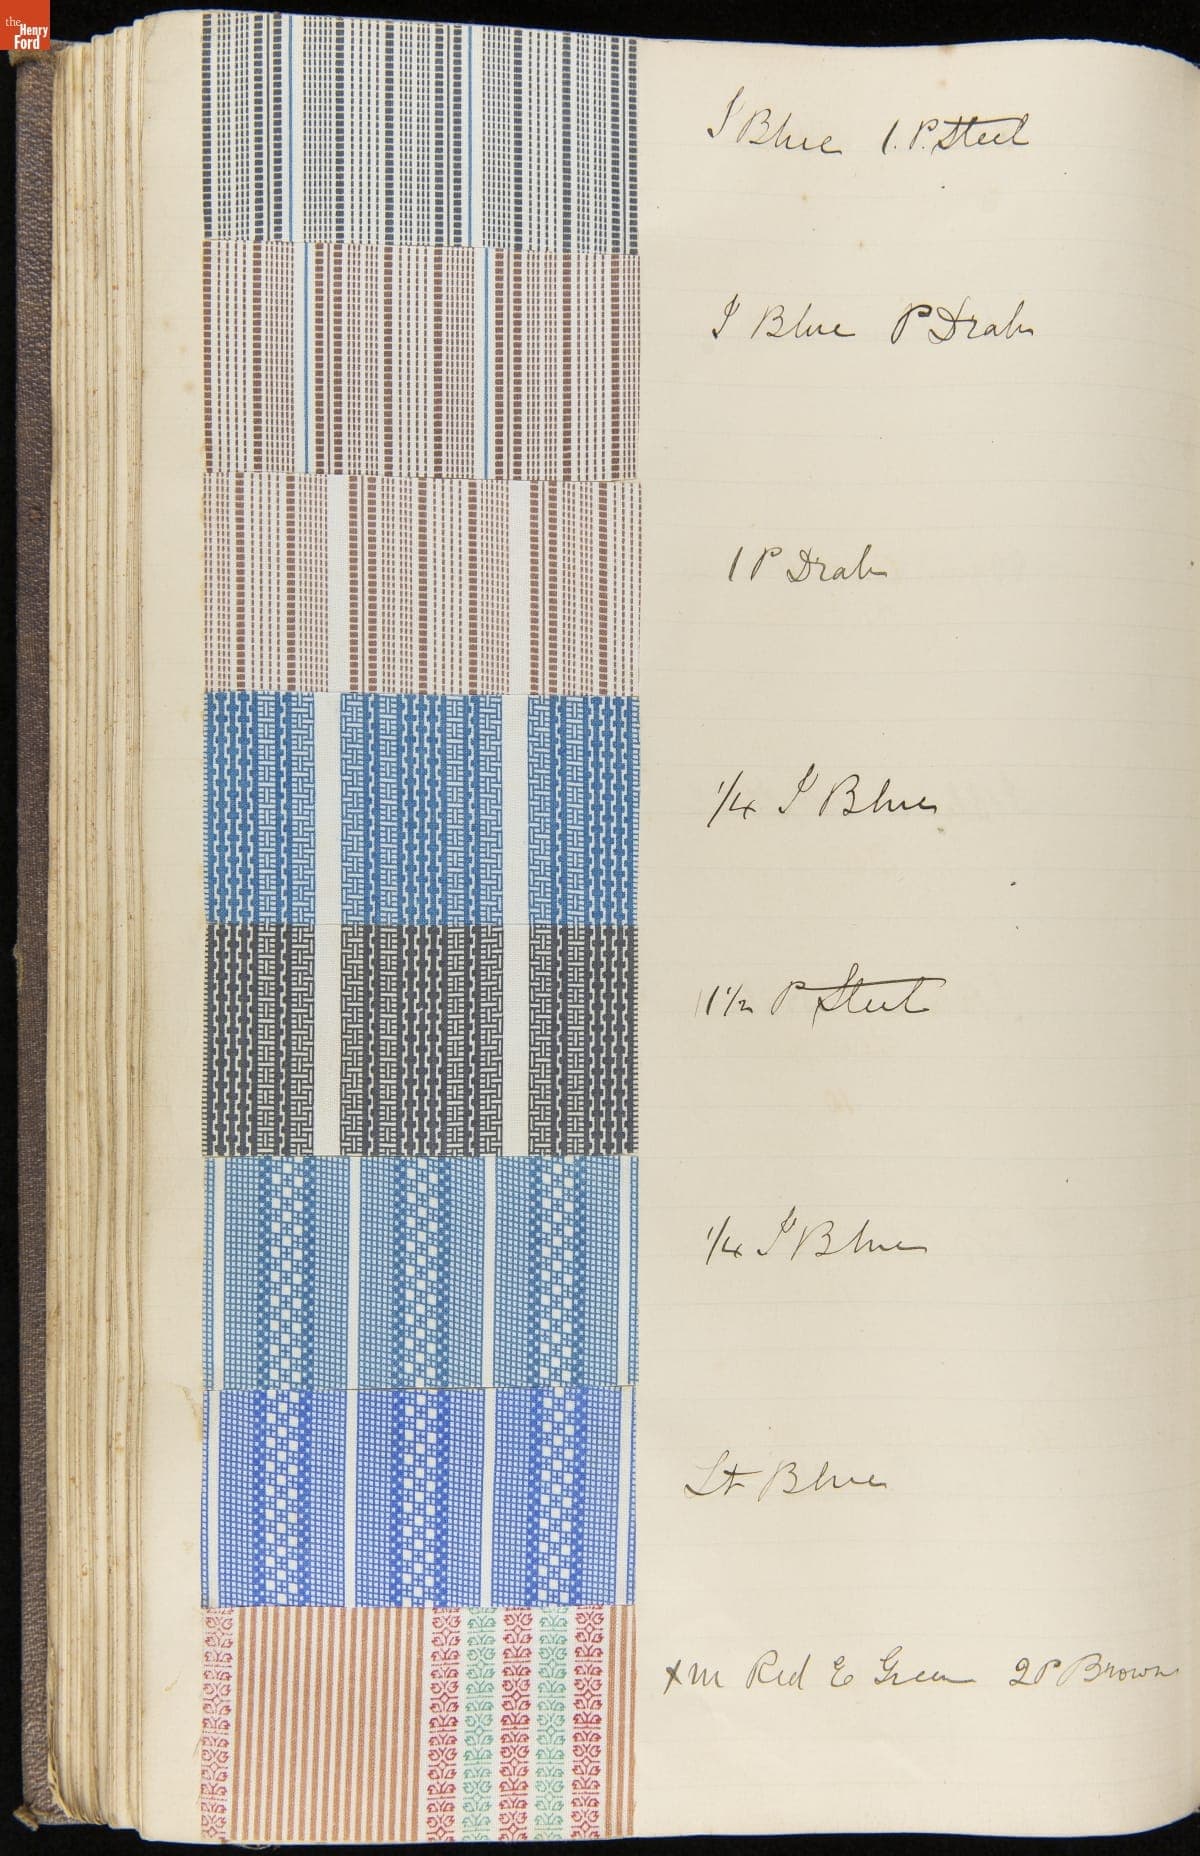 the Henry Ford
I Blue 1. P. Steel
I Blue P Drab
1 P Drab
1/4 I Blue
1 1/2 P Steel
1/4 I Blue
Lt Blue
x m Red E Green 2 P Brown